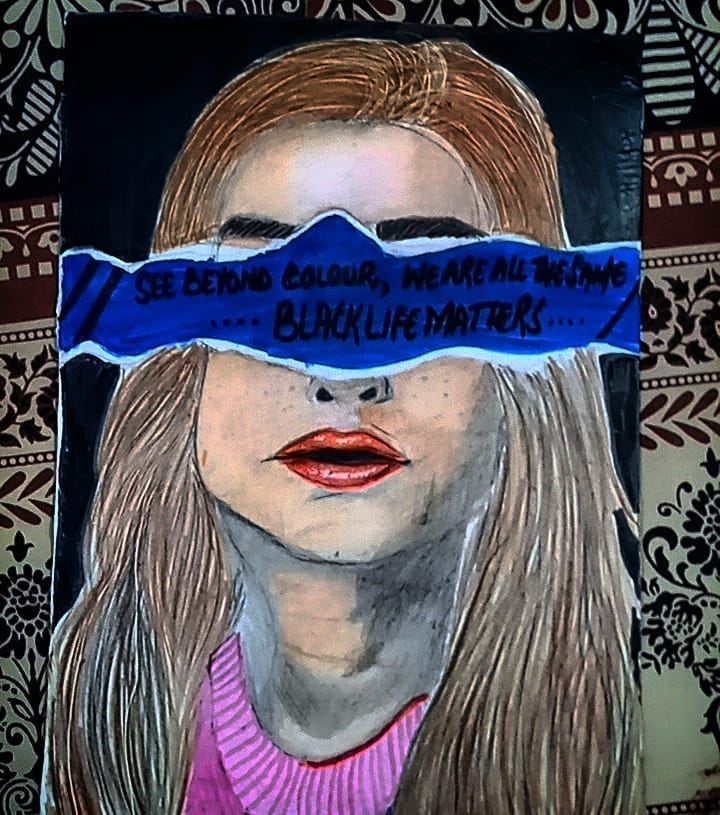 SEE BEYOND COLOUR, WE ARE ALL THE SAME
.... BLACK LIFE MATTERS ....